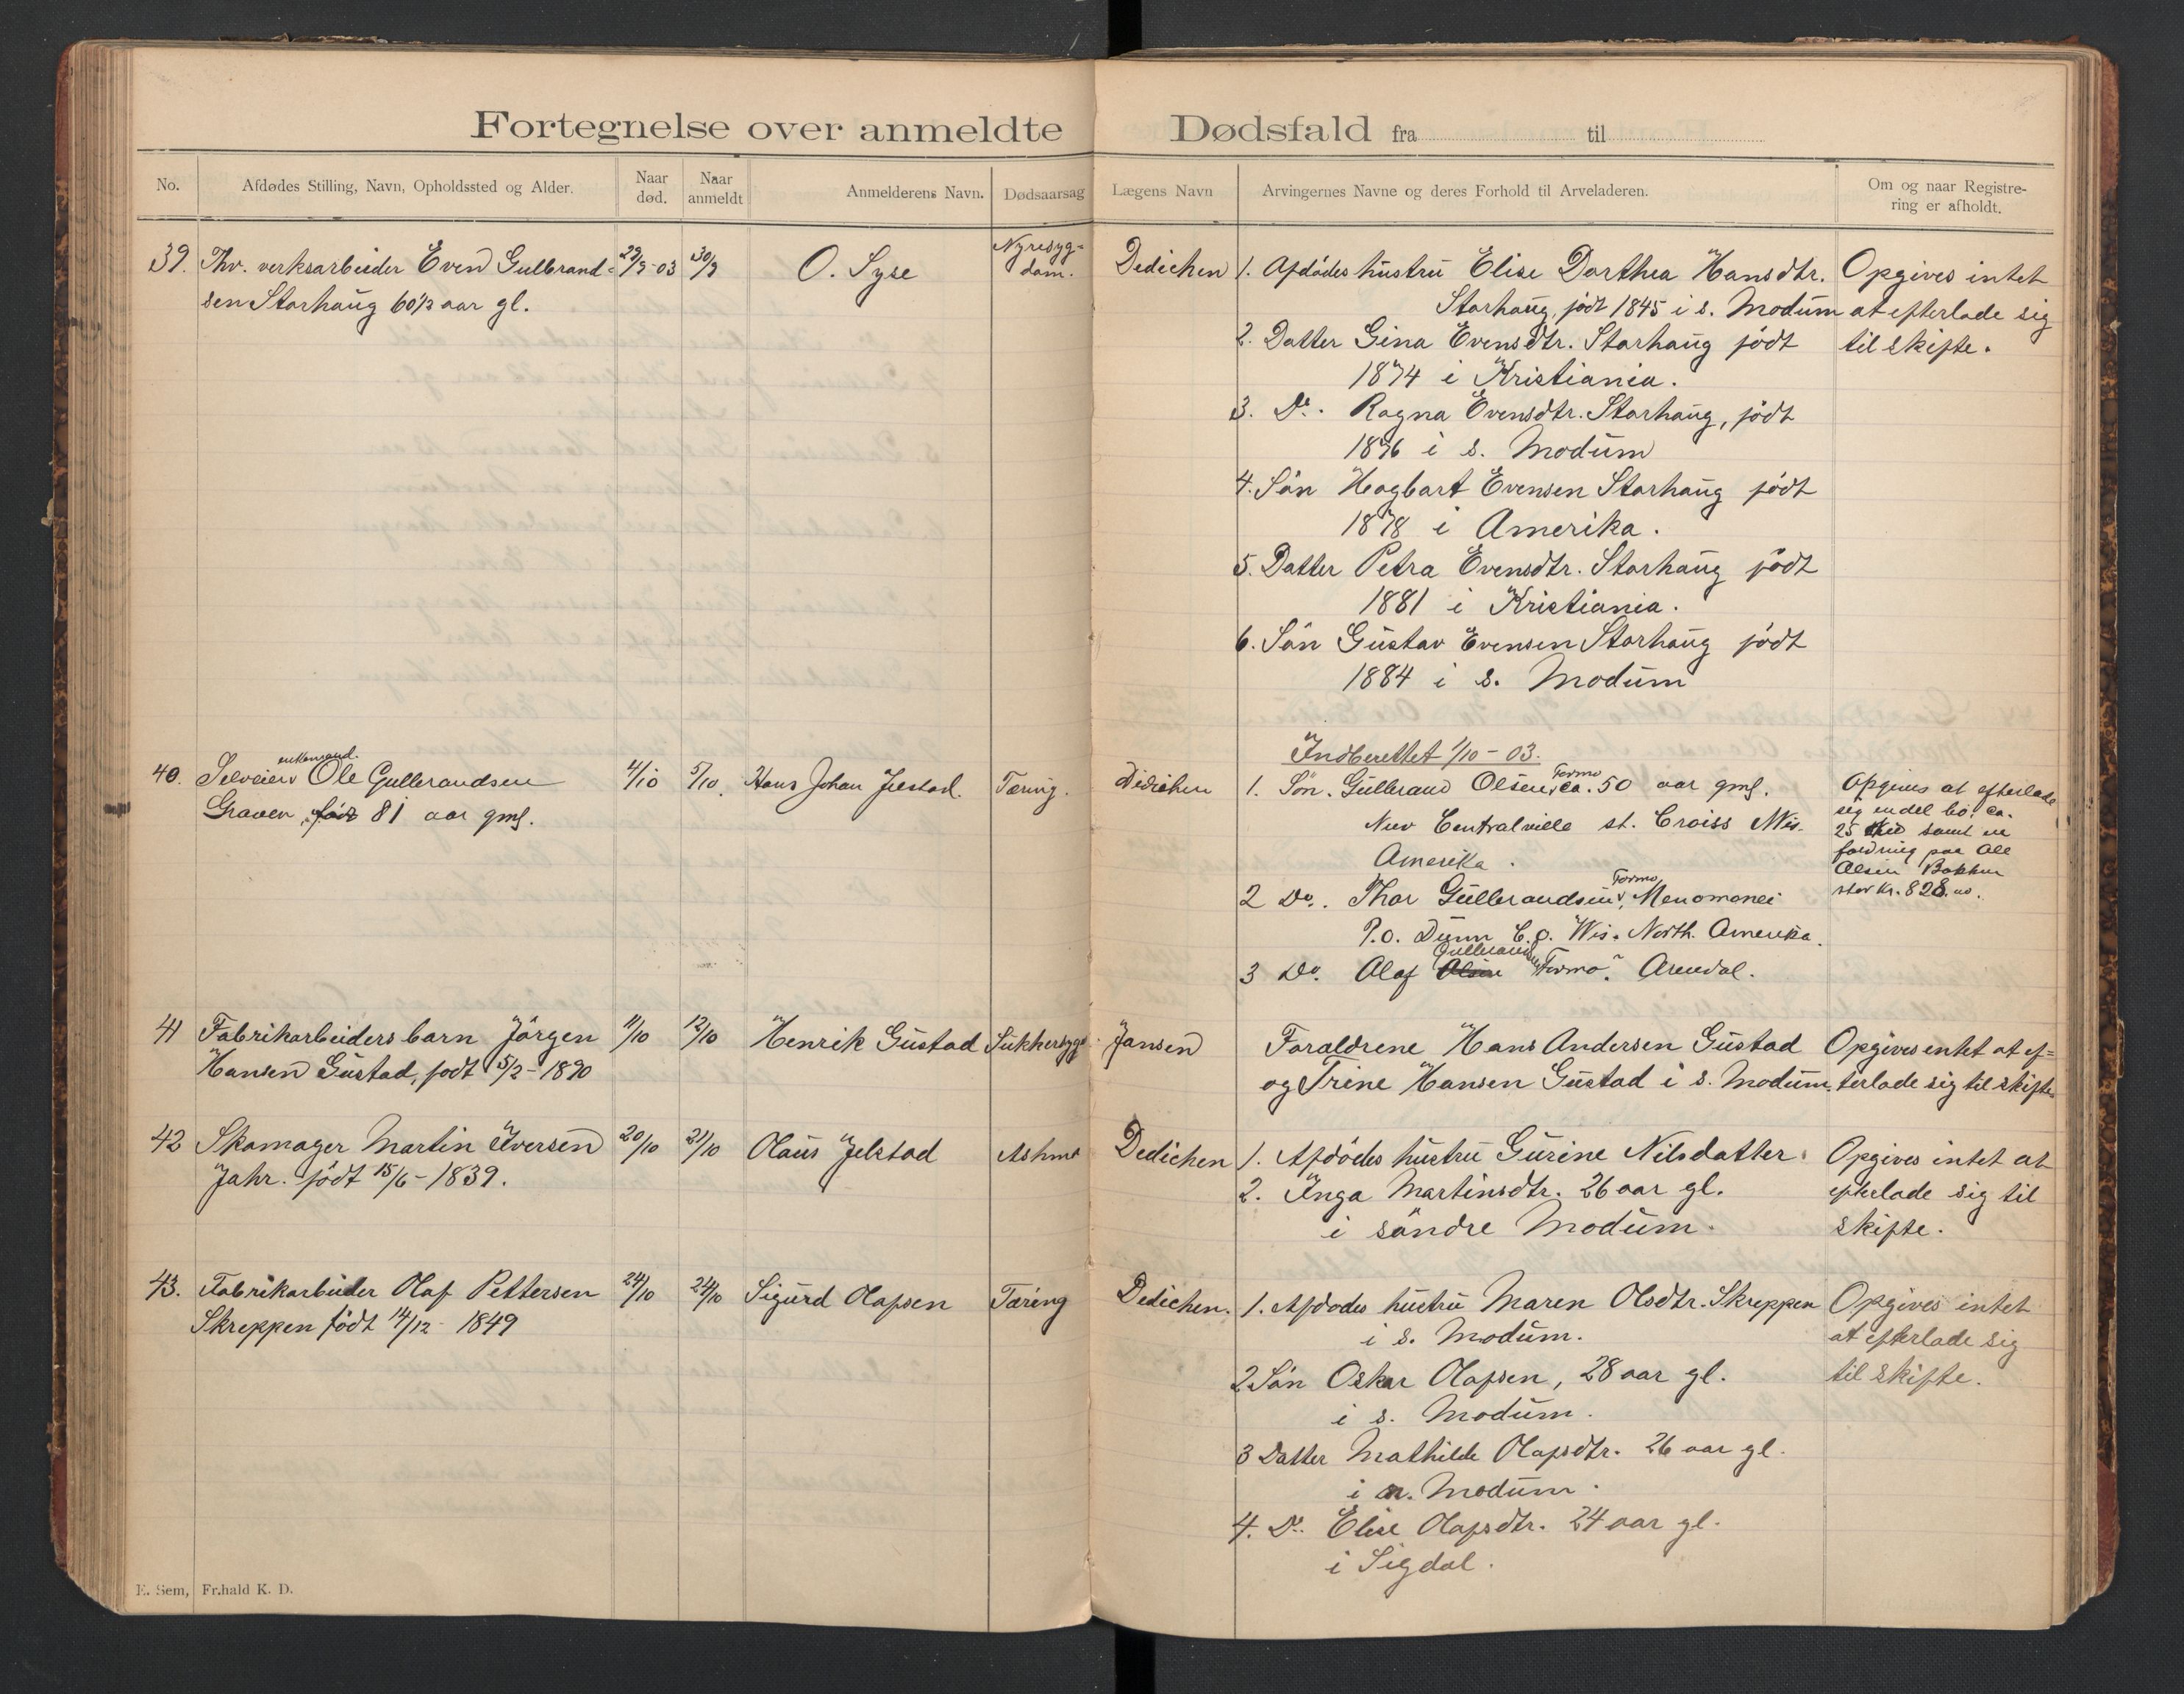 Fortegnelse over anmeldte Dødsfald fra til
No.
Afdødes Stilling, Navn, Opholdssted og Alder.
Naar død.
Naar anmeldt
Anmelderens Navn.
Dødsaarsag
Lægens Navn
Arvingernes Navne og deres Forhold til Arveladeren.
Om og naar Registre-
ring er afholdt.
39. Fhv. verksarbeider Even Gulbrand- 29/9-03 30/9 O. Syse
sen Storhaug 60½ aar gl.
Nyresyg-
dom.
Dedichen
1. Afdødes hustru Elise Dorthea Hansdtr.
Storhaug, født 1845 i s. Modum
2. Datter Gina Evensdtr. Storhaug født
1874 i Kristiania.
3. Do. Ragna Evensdtr. Storhaug, født
1876 i s. Modum
4. Søn Hagbart Evensen Storhaug født
1878 i Amerika.
5. Datter Petra Evensdtr. Storhaug født
1881 i Kristiania.
6. Søn Gustav Evensen Storhaug født
1884 i s. Modum
Opgives intet
at efterlade sig
til skifte.
enkemand.
40. Selveier Ole Gullerandsen 4/10 5/10. Hans Johan Jelstad. Tæring. Didichen
Graven, født 81 aar gml.
Indberettet 1/10-03.
1. Søn. Gullerand Olsen Formo ca. 50 aar gml.
New Centralville st. Croiss Wis.
Amerika.
2 Do. Thor Gullerandsen Formo, Menomonei
P.O. Dunn C.o. Wis. North. Amerika.
Gullerandsen
3 Do. Olaf Olsen Formo. Arendal.
Opgives at efterlade
sig endel bo. ca.
25 samt en
fordring paa Ole
Olsen Bakken
stor kr. 828.00.
41 Fabrikarbeiders barn Jørgen 11/10 12/10 Henrik Gustad Sukkersyge Jansen
Hansen Gustad, født 5/2-1890
Foraldrene Hans Andersen Gustad
og Trine Hansen Gustad i s. Modum.
Opgives intet at ef-
terlade sig til skifte.
42 Skomager Martin Iversen 20/10 21/10 Olaus Jelstad Asthma Dedichen
Jahr. født 15/6-1839.
1. Afdødes hustru Gurine Nilsdatter.
2. Inga Martinsdtr. 26 aar gl.
i søndre Modum.
Opgives intet at
efterlade sig til
skifte.
43. Fabrikarbeider Olaf Pettersen 24/10 24/10 Sigurd Olafsen Tæring Dedichen.
Skreppen født 14/12-1849
1. Afdødes hustru Maren Olsdtr. Skreppen
i s. Modum.
2 Søn Oskar Olafsen, 28 aar gl.
i s. Modum.
3 Datter Mathilde Olafsdtr. 26 aar gl.
i n. Modum.
4. Do. Elise Olafsdtr. 24 aar gl.
i Sigdal.
Opgives intet
at efterlade sig
til skifte.
E. Sem, Fr.hald K. D.